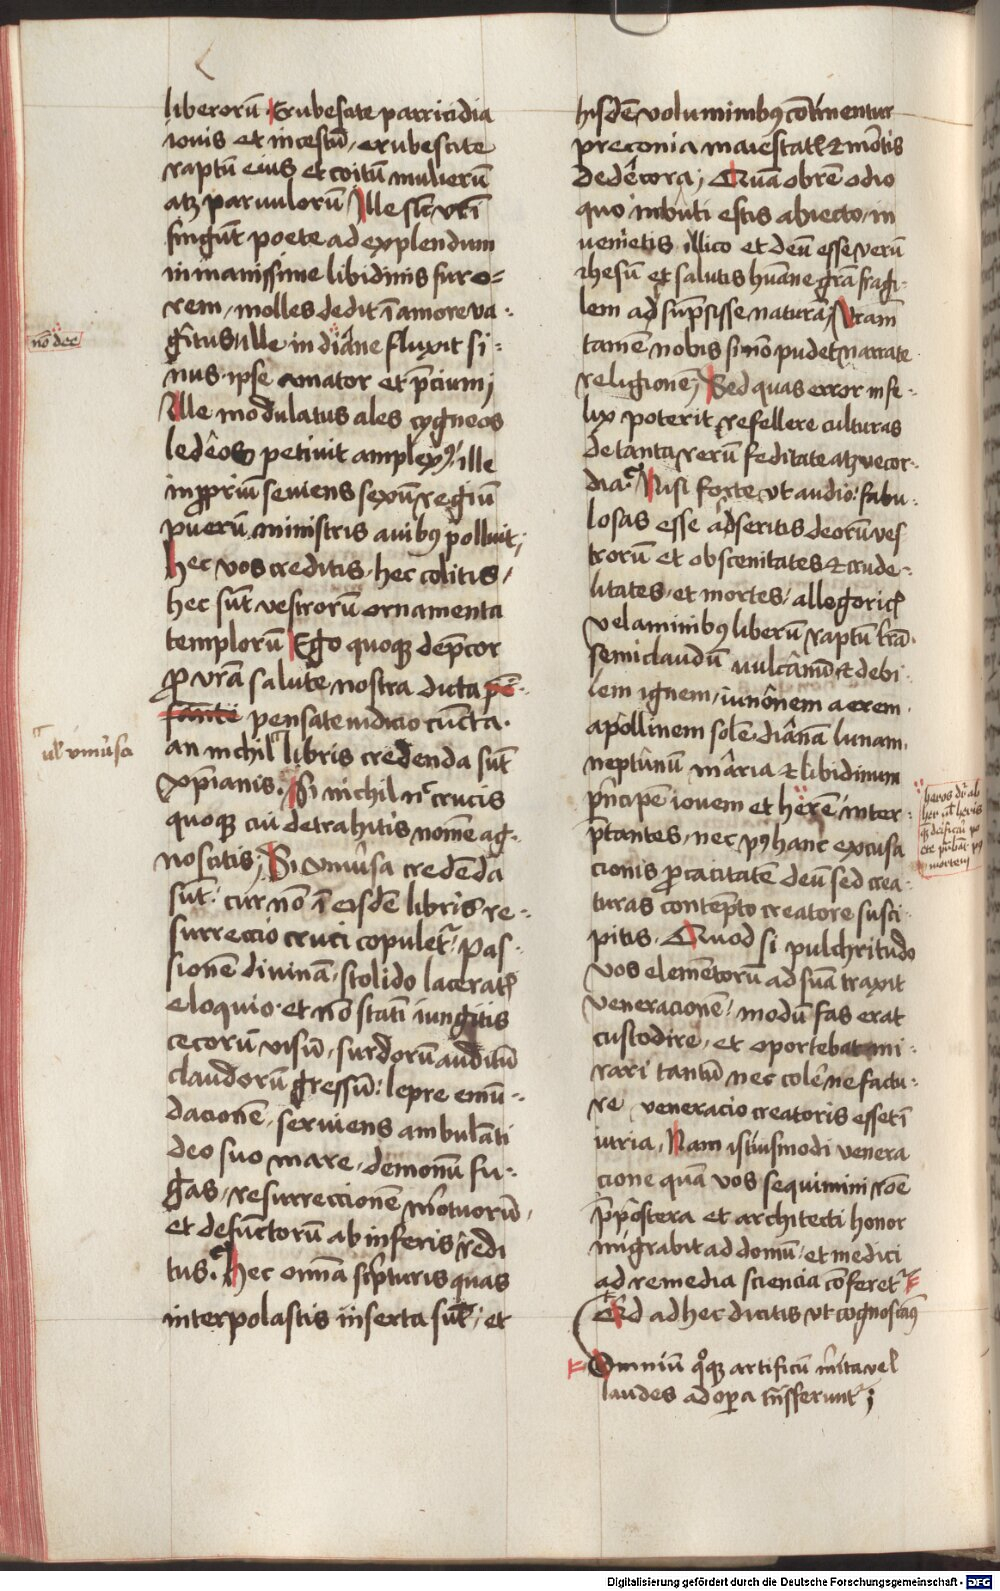 liberorū. Erubescite parricidia
iouis et incestū, erubescite
raptū eius et coitū mulierū
atq̄ paruulorū Ille sic̄ vr̄i
fingūt poete ad explendum
inmanissime libidinis furo-
rem, molles dedit ī amore va-
gitus ille in diane fluxit si-
nus ipse amator et p̄cium;
Ille modulatus ales cygneos
ledeos petiuit amplex9, ille
inp̄priū seuiens sexū regiū
puerū ministris auib9 polluit;
hec vos creditis, hec colitis,
hec sūt vestrorū ornamenta
templorū Ego quoq̨ dep̄cor
ꝓ vrā salute nostra dicta
pensate iudicio cūcta.
an nichil libris credenda sūt
xp̄ianis. Si nichil nc̄ crucis
quoq̨ cui detrahitis nomē ag-
noscitis; Si vniūsa credēda
sūt, cur nō ī eisdē libris re-
surreccio cruci copuletr̄, pas-
sionē diuinā, stolido laceratis
eloquio, et nō statī iungitis
cecorū visū, surdorū auditū
claudorū gressū, lepre emū-
dacionē, seruiens ambulāti
deo suo mare, demonū fu-
gas, resurreccionē mortuorū,
et defūctorū ab inferis redi
tus? Hec omnia scp̄turis quas
interpolastis iīserta sūt, et
nō dee
ul̄ vniūsa
hisdē voluminib9 cōtinentur
preconia maiestatis et mōtis
dedecora; Quāobrē odio
quo inbuti estis abiecto, in
uenietis illico et deū esse verū
ihesū et salutis hūane grā fragi-
lem adsūpsisse naturā; Vrām
tamē nobis si nō pudet narrate
religionē; Sed quas error infe-
lix poterit refellere culturas
de tanta rerū feditate atq̄ vecor-
dia? Nisi forte vt audio, fabu-
losas esse adseritis deorū ves
trorū et obscenitates et crude-
litates, et mortes, allegoricis
velaminib9 liberū raptū trā.
semiclaudū uulcānū et debi-
lem ignem, iunōnem aerem,
apollinem solē diānā lunam,
neptūnū māria et libidinum
p̄ncipē iouem et herē inter-
p̄tantes, nec p9 hanc excusa
cionis ꝓcacitatē deū sed crea-
turas contēpto creatore susci-
pitis. Quod si pulchritudo
vos elemētorū ad suā traxit
veneracionē, modū fas erat
custodire, et oportebat mi-
rari tantū nec colere ne factu-
re veneracio creatoris esset ī
iuria, Nam istiusmodi venera
cione quā vos sequimini roē
p̄postera et architecti honor
migrabit ad domū, et medici
ad remedia sciencia cōferetr̄
Sed ad hec dicitis vt cognoscam9
Omniū qoq̨ artificū mīta vel
laudes ad opera trāsferuntr̄;
heros dr̄ ab
mortem
Digitalisierung gefördert durch die Deutsche Forschungsgemeinschaft - DFG